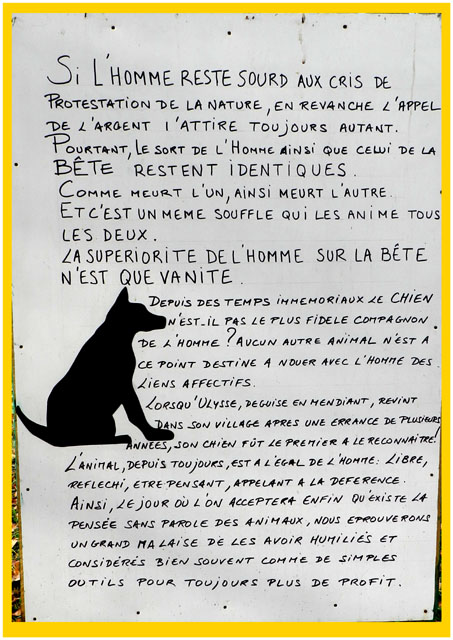 SI L'HOMME RESTE SOURD AUX CRIS DE
PROTESTATION DE LA NATURE, EN REVANCHE L'APPEL
DE L'ARGENT l'ATTIRE TOUJOURS AUTANT.
POURTANT, LE SORT DE L'HOMME AINSI QUE CELUI DE LA
BÊTE RESTENT IDENTIQUES.
COMME MEURT L'UN, AINSI MEURT L'AUTRE.
ET C'EST UN MEME SOUFFLE QUI LES ANIME TOUS
LES DEUX.
LA SUPERIORITE DE L'HOMME SUR LA BÊTE
N'EST QUE VANITE.
DEPUIS DES TEMPS IMMEMORIAUX LE CHIEN
N'EST-IL PAS LE PLUS FIDELE COMPAGNON
DE L'HOMME ? AUCUN AUTRE ANIMAL N'EST A
CE POINT DESTINE A NOUER AVEC L'HOMME DES
LIENS AFFECTIFS.
LORSQU'ULYSSE, DEGUISE EN MENDIANT, REVINT
DANS SON VILLAGE APRES UNE ERRANCE DE PLUSIEURS
ANNEES, SON CHIEN FÛT LE PREMIER A LE RECONNAITRE!
L'ANIMAL, DEPUIS TOUJOURS, EST A L'EGAL DE L'HOMME: LIBRE,
REFLECHI, ETRE PENSANT, APPELANT A LA DEFERENCE.
AINSI, LE JOUR OÙ L'ON ACCEPTERA ENFIN QU'EXISTE LA
PENSÉE SANS PAROLE DES ANIMAUX, NOUS EPROUVERONS
UN GRAND MALAISE DE LES AVOIR HUMILIÉS ET
CONSIDÉRÉS BIEN SOUVENT COMME DE SIMPLES
OUTILS POUR TOUJOURS PLUS DE PROFIT.